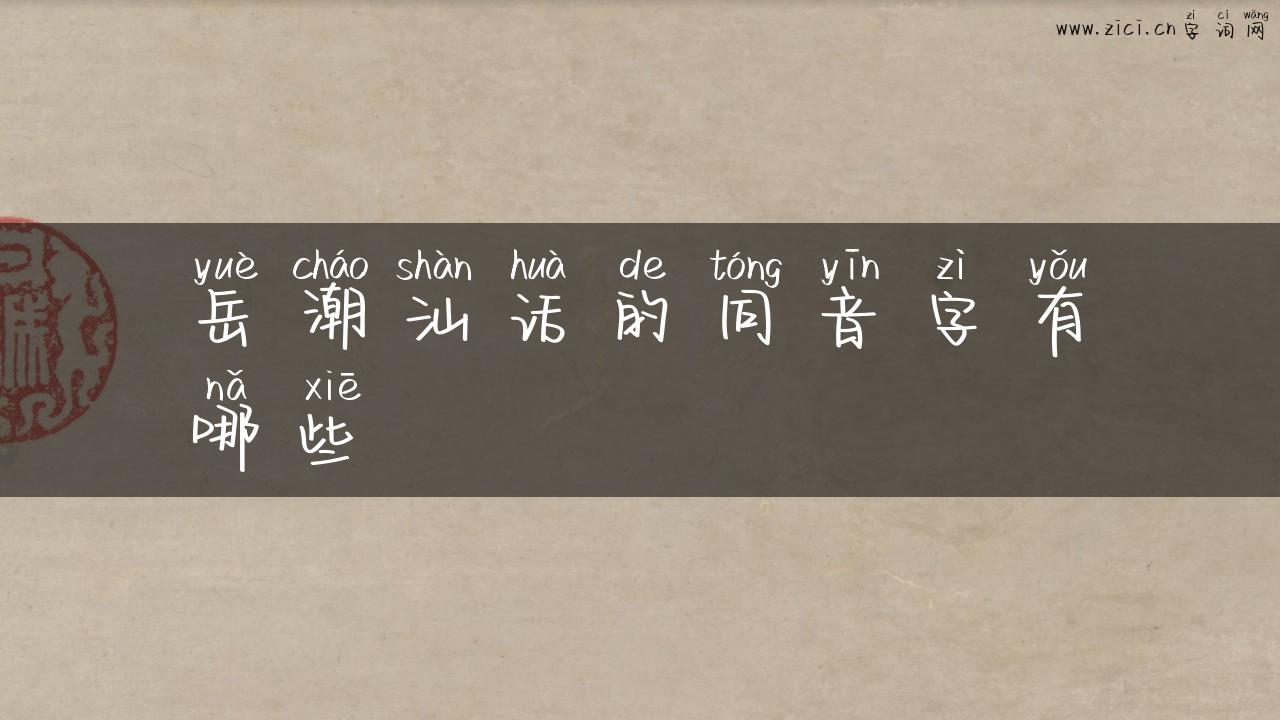 zì cí wǎng
www.zici.cn 字词网
yuè cháo shàn huà de tóng yīn zì yǒu
岳潮汕话的同音字有
nǎ xiē
哪些